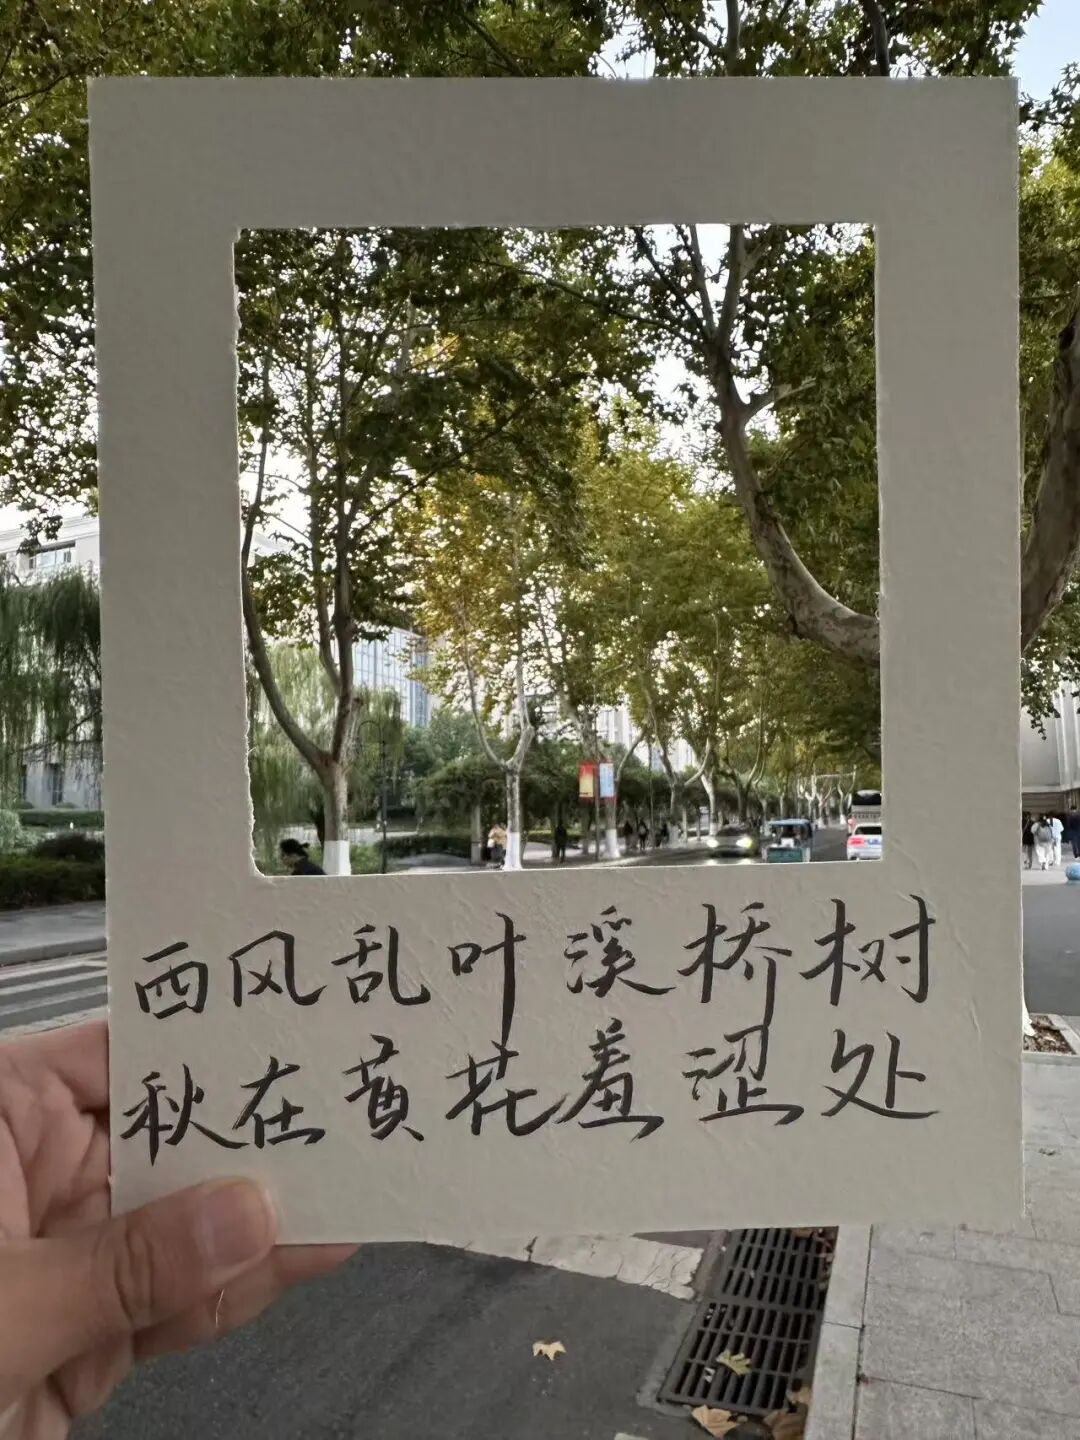 西风乱叶溪桥树
秋在黄花羞涩处